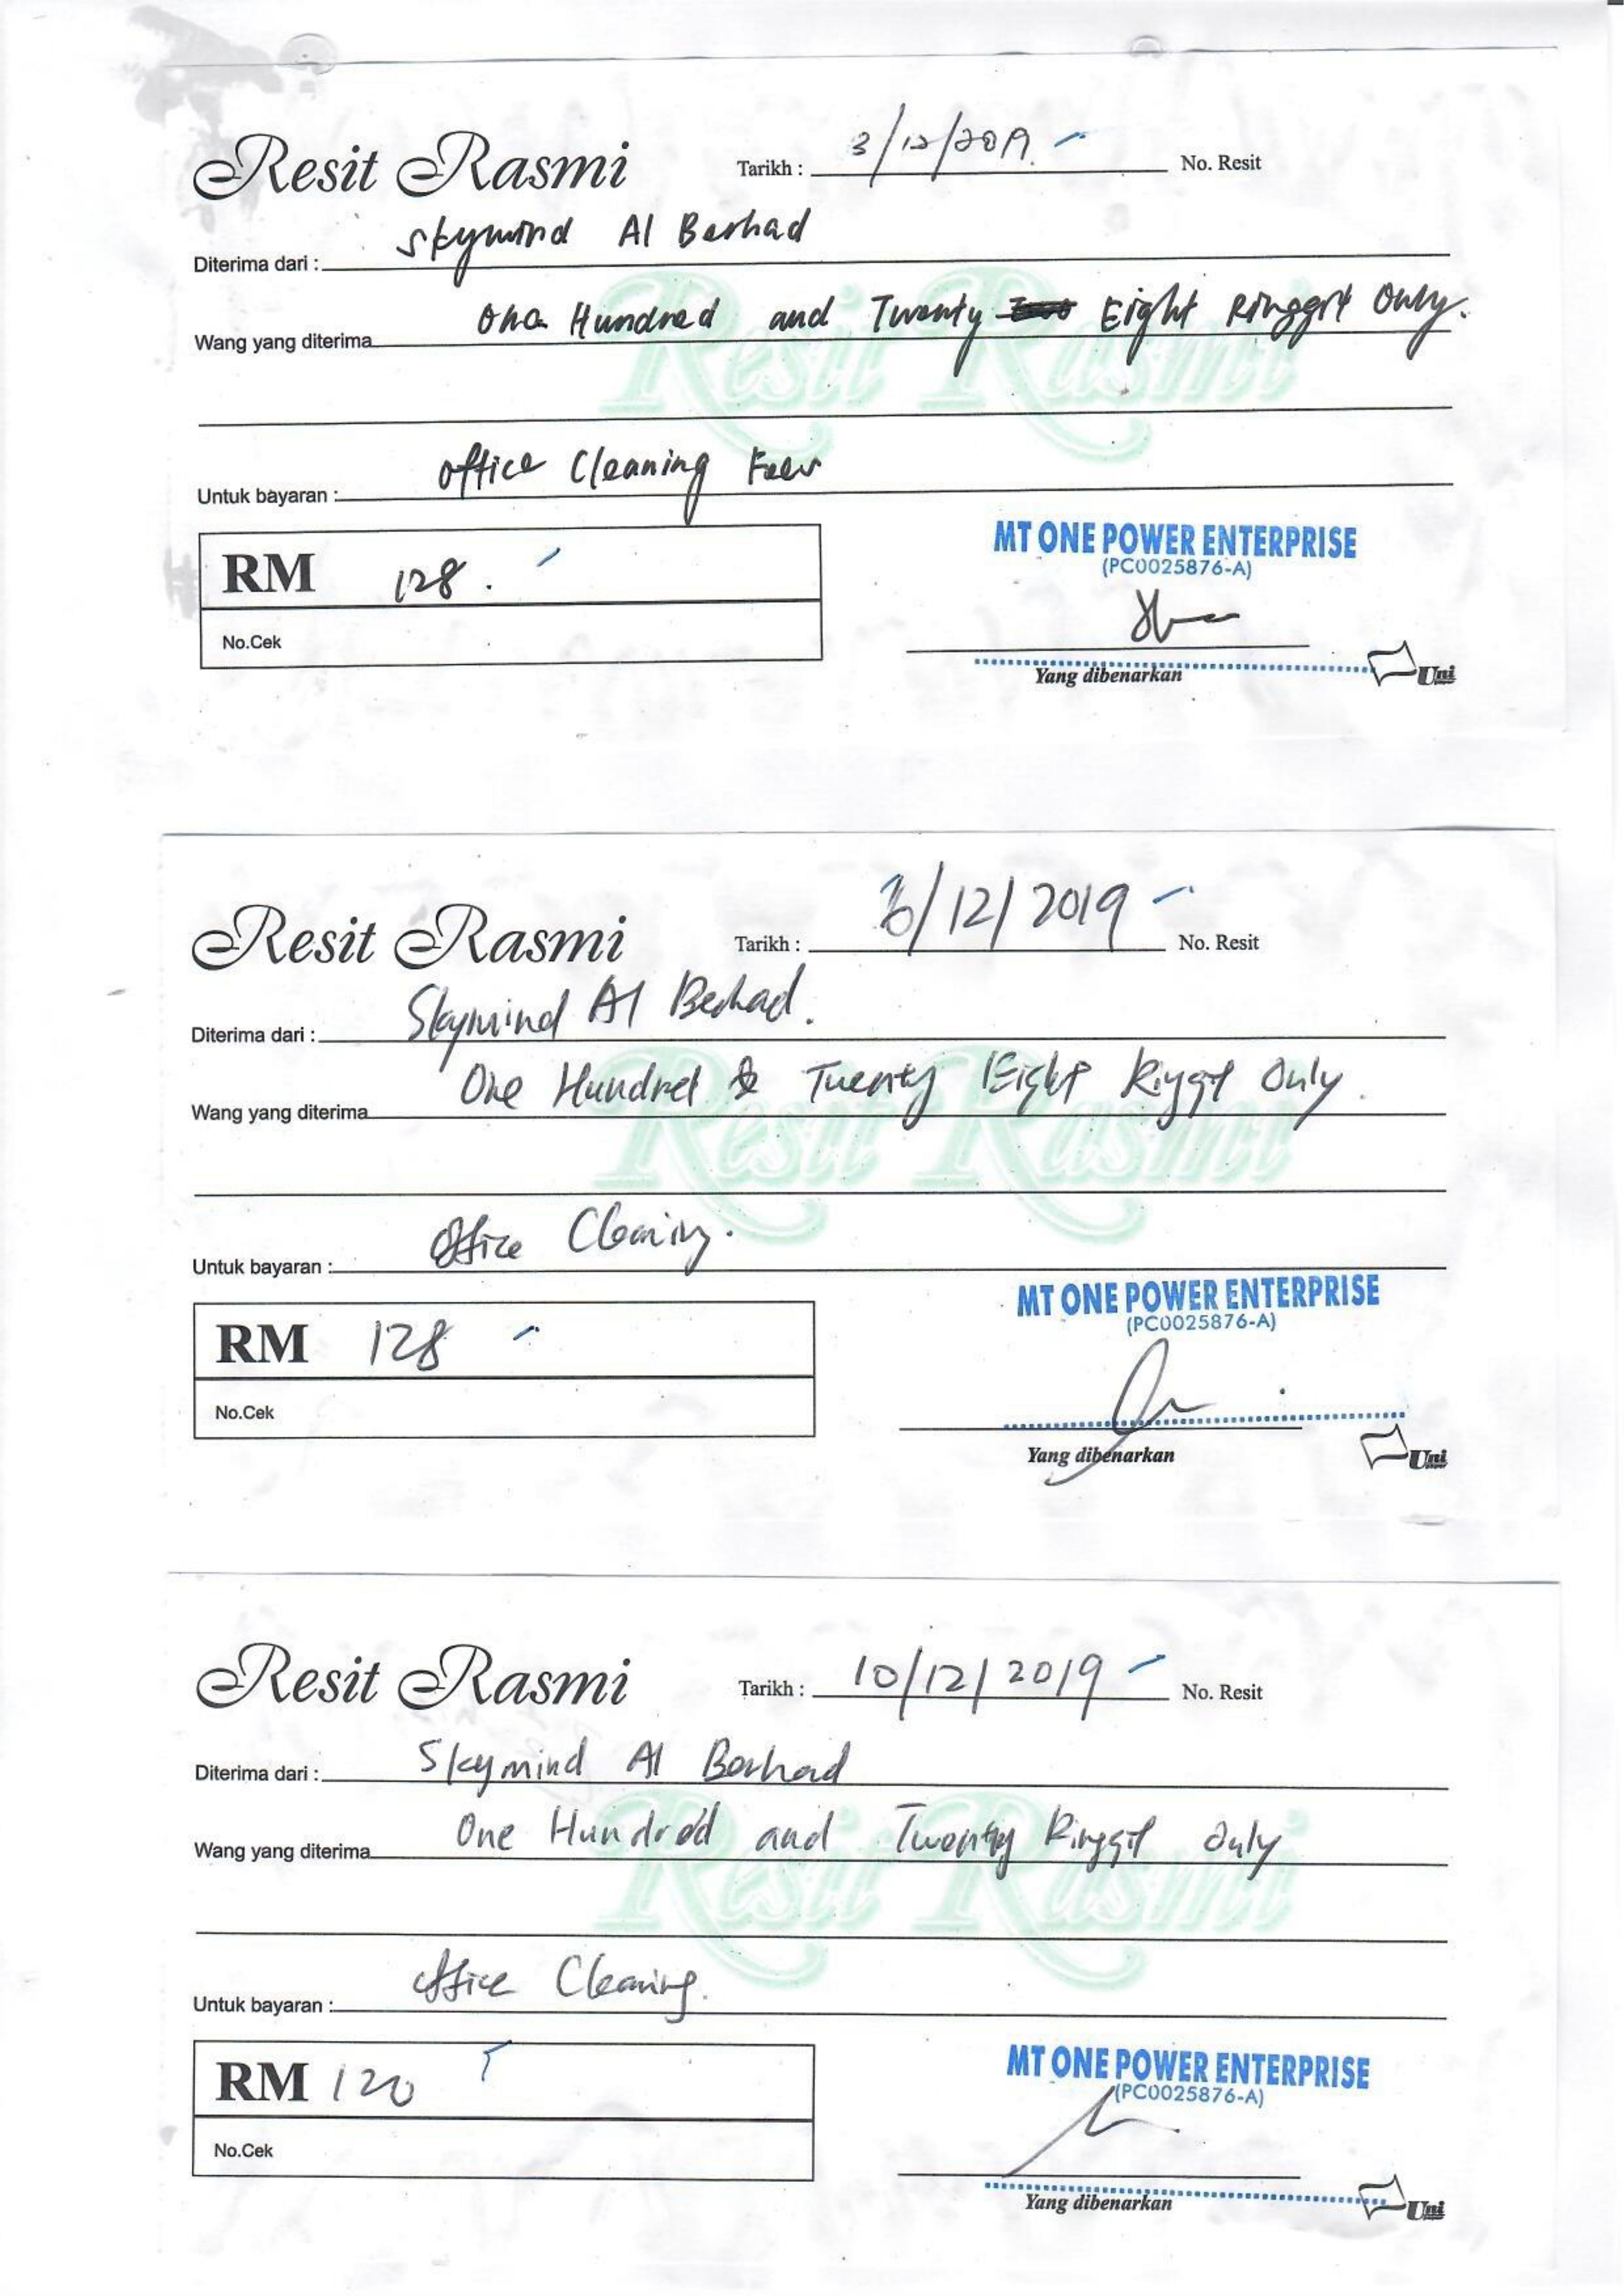 Resit Rasmi Tarikh : 3/12/2019 No. Resit
Diterima dari : Skymind AI Berhad
Wang yang diterima One Hundred and Twenty Eight Ringgit Only.
Untuk bayaran : Office Cleaning Fees
RM 128.
No.Cek
MT ONE POWER ENTERPRISE
(PC0025876-A)
Yang dibenarkan
Uni
Resit Rasmi Tarikh : /12/2019 No. Resit
Diterima dari : Skymind AI Berhad.
Wang yang diterima One Hundred & Twenty Eight Ringgit Only.
Untuk bayaran : Office Cleaning.
RM 128
No.Cek
MT ONE POWER ENTERPRISE
(PC0025876-A)
Yang dibenarkan
Uni
Resit Rasmi Tarikh : 10/12/2019 No. Resit
Diterima dari : Skymind AI Berhad
Wang yang diterima One Hundred and Twenty Ringgit Only
Untuk bayaran : Office Cleaning.
RM 120
No.Cek
MT ONE POWER ENTERPRISE
(PC0025876-A)
Yang dibenarkan
Uni